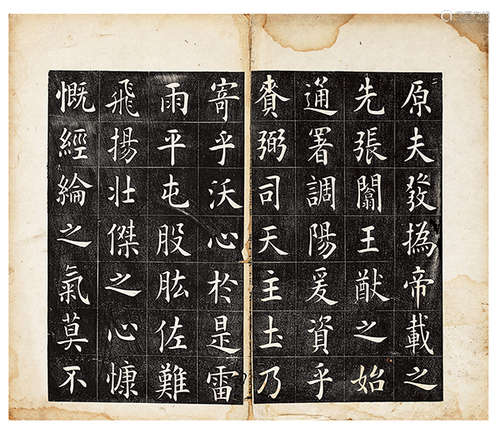 原夫發撝帝載之
先張闡王猷之始
通署調陽爰資乎
賚弼司天主土乃
寄乎沃心於是雷
雨平屯股肱佐難
飛揚壯傑之心慷
慨經綸之氣莫不